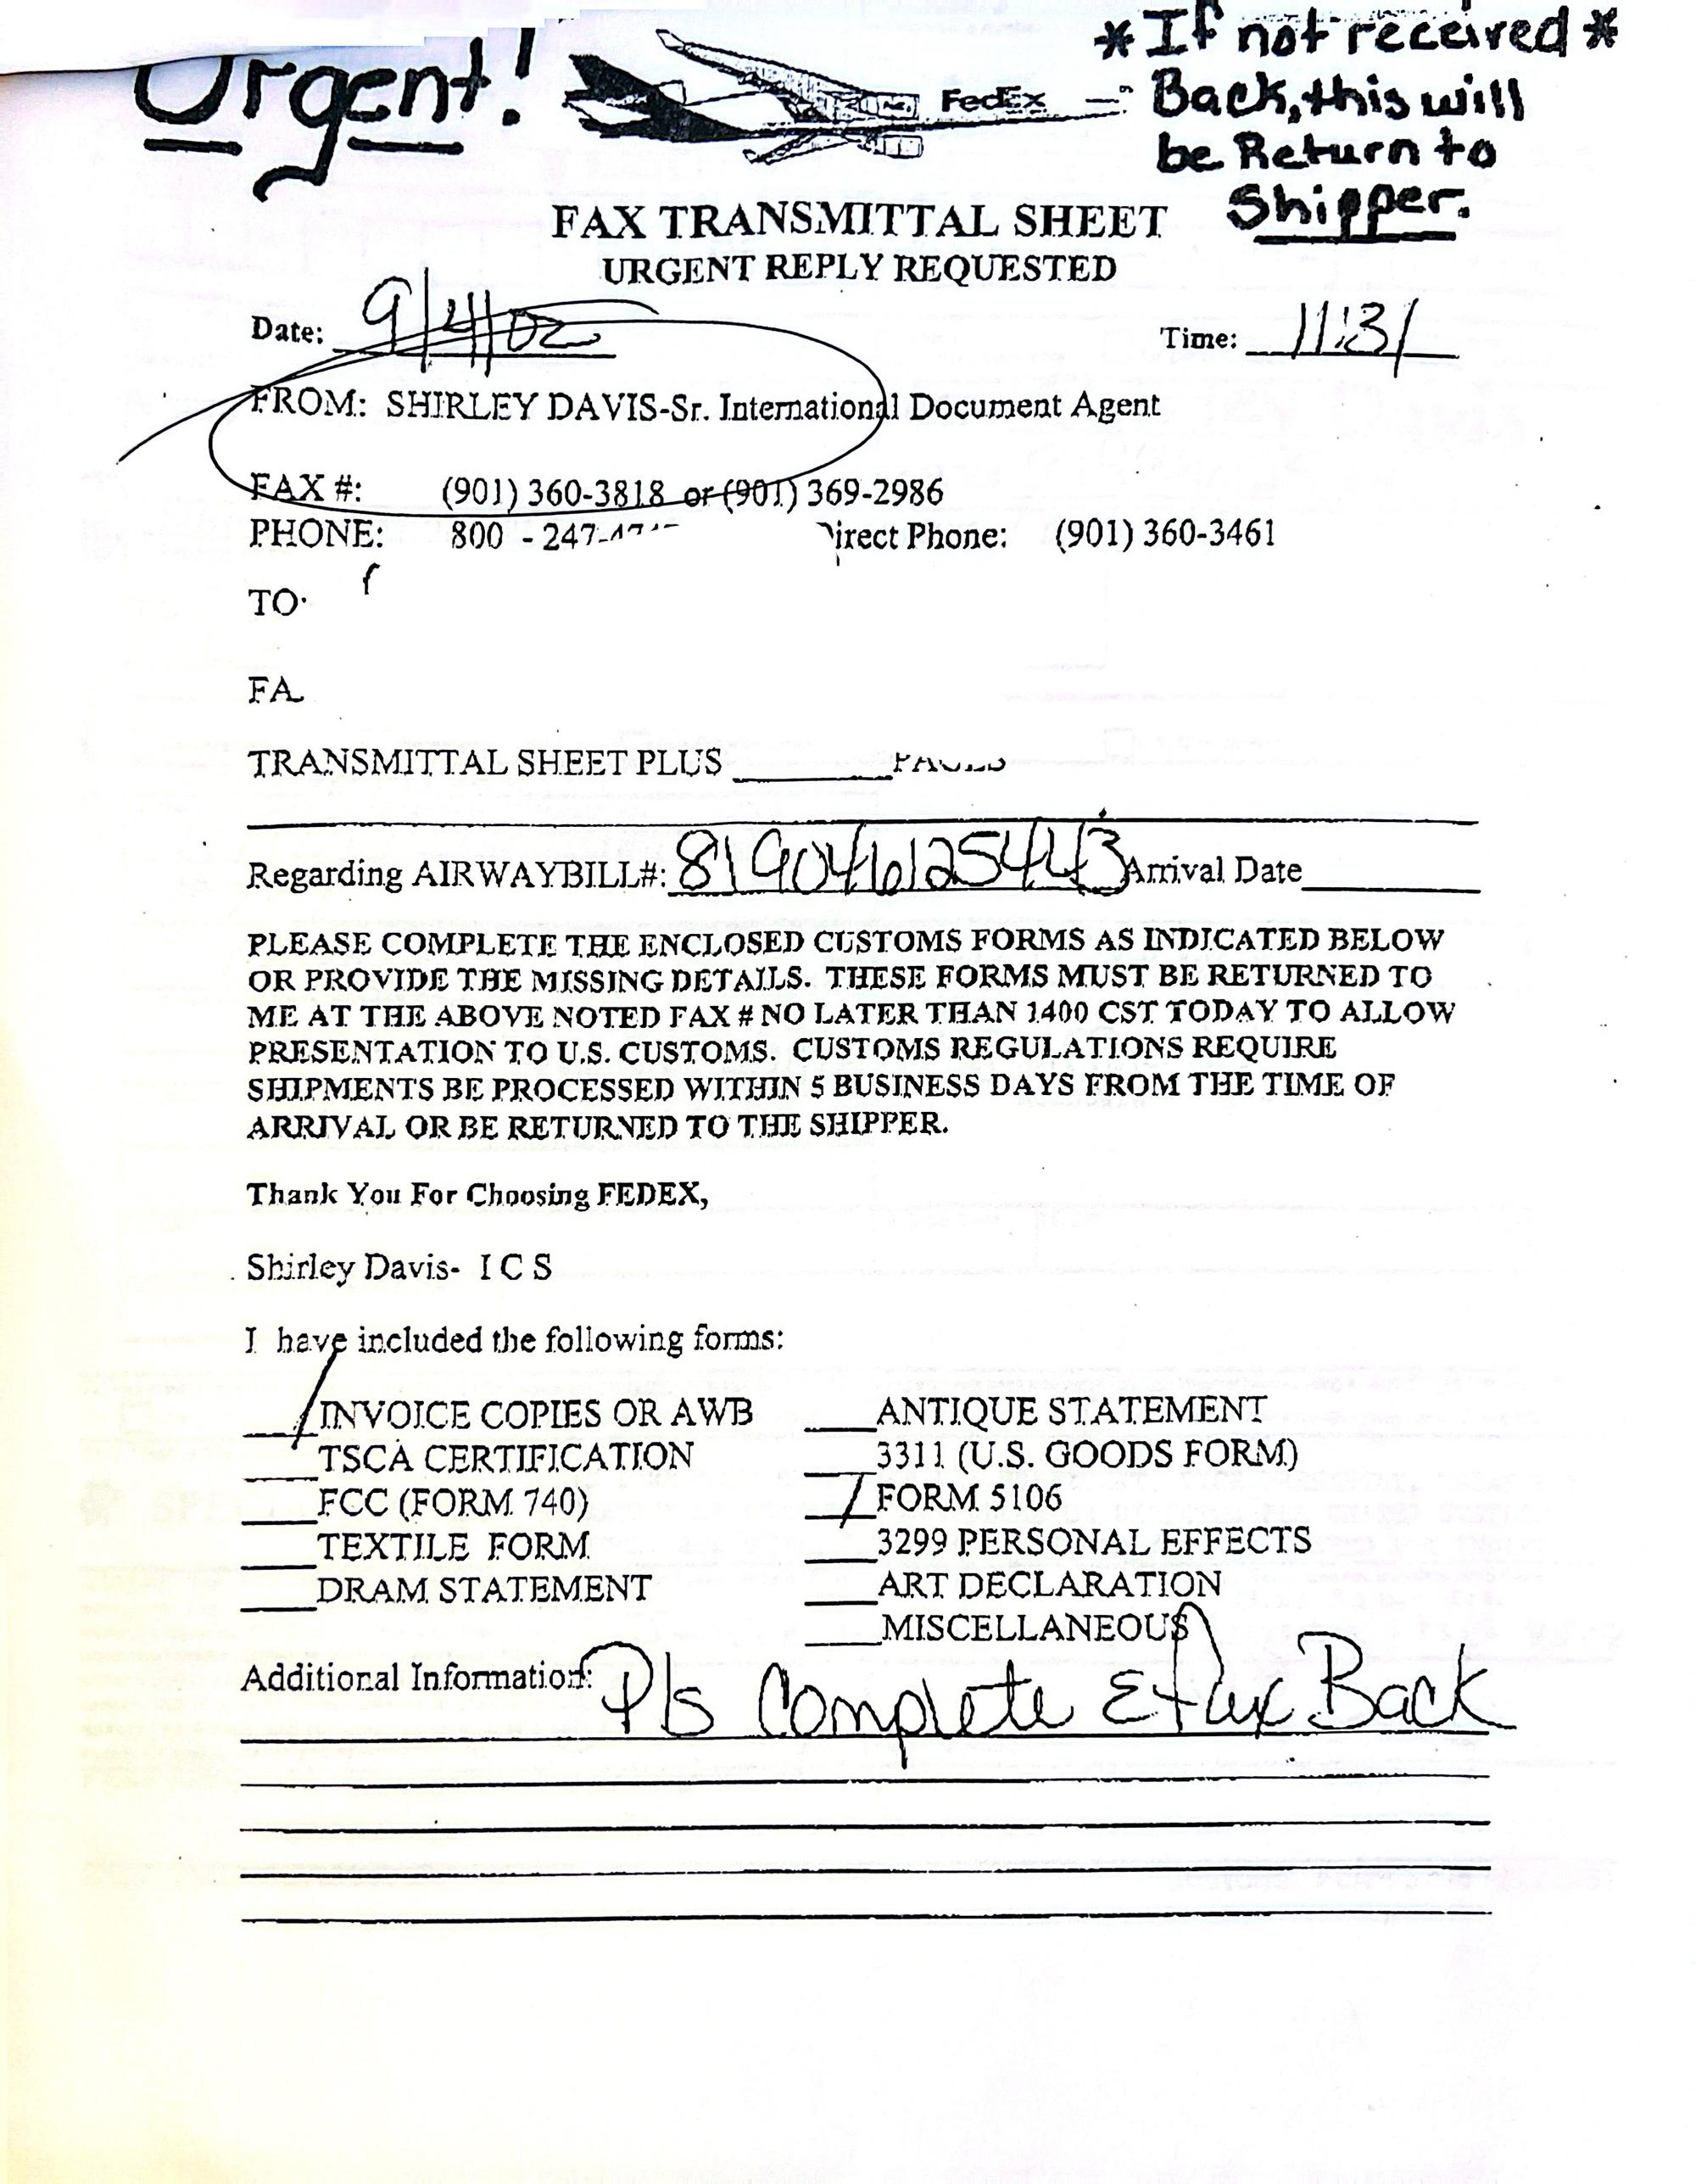 Urgent!
FedEx
* If not received *
Back, this will
be Return to
Shipper.
FAX TRANSMITTAL SHEET
URGENT REPLY REQUESTED
Date: 9/4/02 Time: 11:31
FROM: SHIRLEY DAVIS-Sr. International Document Agent
FAX #: (901) 360-3818 or (901) 369-2986
PHONE: 800 - 247- Direct Phone: (901) 360-3461
TO
FA
TRANSMITTAL SHEET PLUS ______ PAGES
Regarding AIRWAYBILL#: 819046125443 Arrival Date______
PLEASE COMPLETE THE ENCLOSED CUSTOMS FORMS AS INDICATED BELOW
OR PROVIDE THE MISSING DETAILS. THESE FORMS MUST BE RETURNED TO
ME AT THE ABOVE NOTED FAX # NO LATER THAN 1400 CST TODAY TO ALLOW
PRESENTATION TO U.S. CUSTOMS. CUSTOMS REGULATIONS REQUIRE
SHIPMENTS BE PROCESSED WITHIN 5 BUSINESS DAYS FROM THE TIME OF
ARRIVAL OR BE RETURNED TO THE SHIPPER.
Thank You For Choosing FEDEX,
Shirley Davis- I C S
I have included the following forms:
___/INVOICE COPIES OR AWB ___ANTIQUE STATEMENT
___TSCA CERTIFICATION ___3311 (U.S. GOODS FORM)
___FCC (FORM 740) _/_FORM 5106
___TEXTILE FORM ___3299 PERSONAL EFFECTS
___DRAM STATEMENT ___ART DECLARATION
___MISCELLANEOUS
Additional Information: Pls Complete & Fax Back